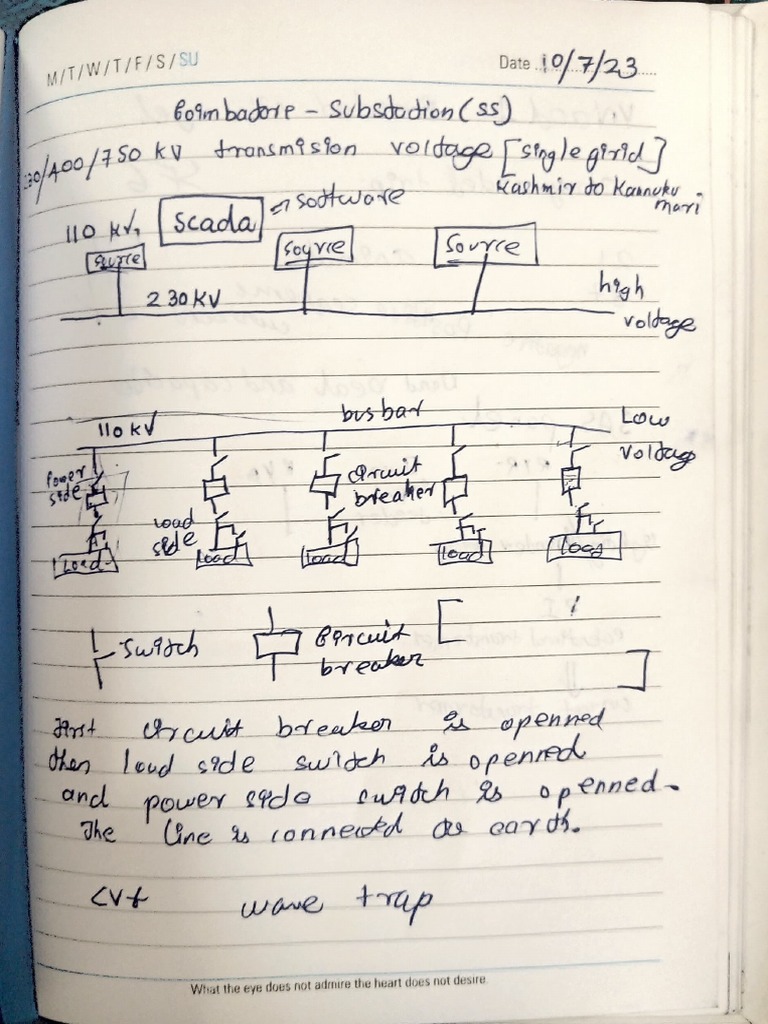 M/T/W/T/F/S/SU
Date 10/7/23
Coimbadore - Substadion (SS)
230/400/750 kV transmision voltage [single girid]
Kashmir to Kannuku
mari
110 kV, Scada software
source source source
230 KV high
voltage
110 kV busbar Low
voltag
Power
side Circuit
breaker
Load
side
Load Load Load Load Load
Switch Circuit
breaker
First circuit breaker is openned
then load side switch is openned
and power side switch is openned.
The line is connected to earth.
CVT wave trap
What the eye does not admire the heart does not desire